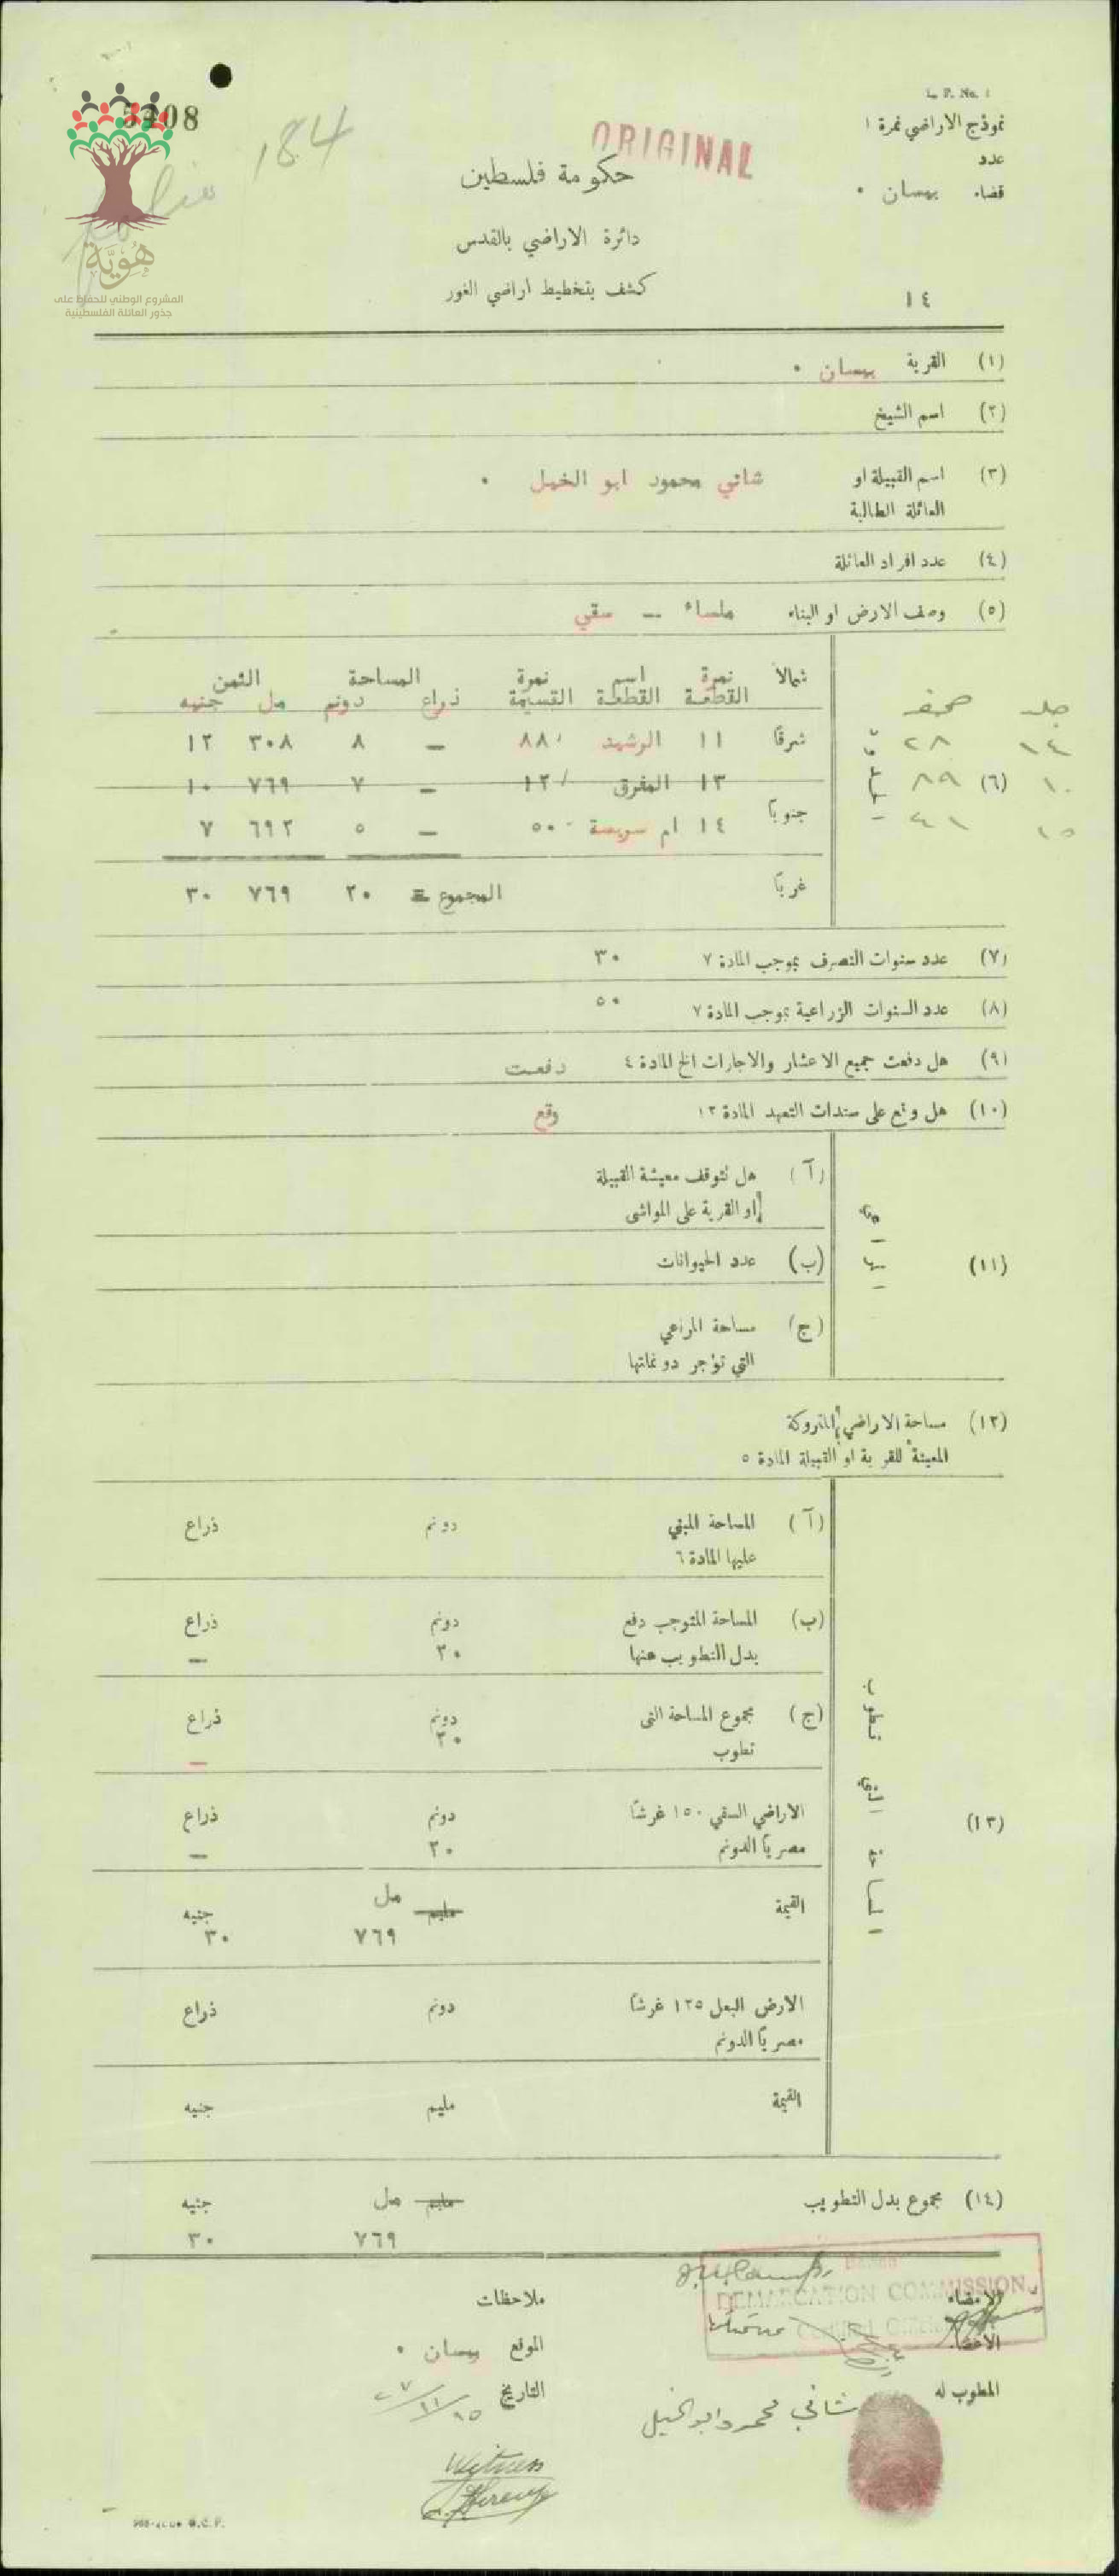 L. P. No. 1
نموذج الاراضي نمرة ١
5408
184
ORIGINAL
عدد
حكومة فلسطين
قضاء بيسان .
دائرة الاراضي بالقدس
هُوِيَّة
المشروع الوطني للحفاظ على
جذور العائلة الفلسطينية
كشف بتخطيط اراضي الغور
١٤
(١) القرية بيسان .
(٢) اسم الشيخ
(٣) اسم القبيلة او شاتي محمود ابو الخيل .
العائلة الطالبة
(٤) عدد افراد العائلة
(٥) وصف الارض او البناء ملساء — سقي
شمالاً نمرة اسم نمرة المساحة الثمن
القطعة القطعة القسيمة ذراع دونم مل جنيه
جلد صحيفة
١٤ ٢٨ شرقاً ١١ الرشيد ٨٨ — ٨ ٣٠٨ ١٢
١٠ (٦) ٨٩ ١٣ المفرق ١٢ — ٧ ٧٦٩ ١٠
١٥ ٤١ جنوباً ١٤ ام سويصة ٥٠ — ٥ ٦٩٢ ٧
غرباً المجموع = ٢٠ ٧٦٩ ٣٠
(٧) عدد سنوات التصرف بموجب المادة ٧ ٣٠
(٨) عدد السنوات الزراعية بموجب المادة ٧ ٥٠
(٩) هل دفعت جميع الاعشار والاجارات الخ المادة ٤ دفعت
(١٠) هل وقع على سندات التعهد المادة ١٢ وقع
(١١) (آ) هل تتوقف معيشة القبيلة
او القرية على المواشي
(ب) عدد الحيوانات
(ج) مساحة المراعي
التي تؤجر دونماتها
(١٢) مساحة الاراضي المتروكة
المعينة للقرية او القبيلة المادة ٥
(١٣) المساحة
تطوب
(آ) المساحة المبني دونم ذراع
عليها المادة ٦
(ب) المساحة المتوجب دفع دونم ذراع
بدل التطويب عنها ٢٠ —
(ج) مجموع المساحة التي دونم ذراع
تطوب ٢٠ —
الاراضي السقي ١٥٠ غرشاً دونم ذراع
مصرياً الدونم ٢٠ —
القيمة مليم مل جنيه
٧٦٩ ٣٠
الارض البعل ١٢٥ غرشاً دونم ذراع
مصرياً الدونم
القيمة مليم جنيه
(١٤) مجموع بدل التطويب مليم مل جنيه
٧٦٩ ٣٠
Beisan
DEMARCATION COMMISSION
الامضاء
ملاحظات
الاعضاء
الموقع بيسان .
التاريخ ١٥/١١/٢٧
المطوب له شاتي محمود ابو الخيل
Witness
G.C.P.